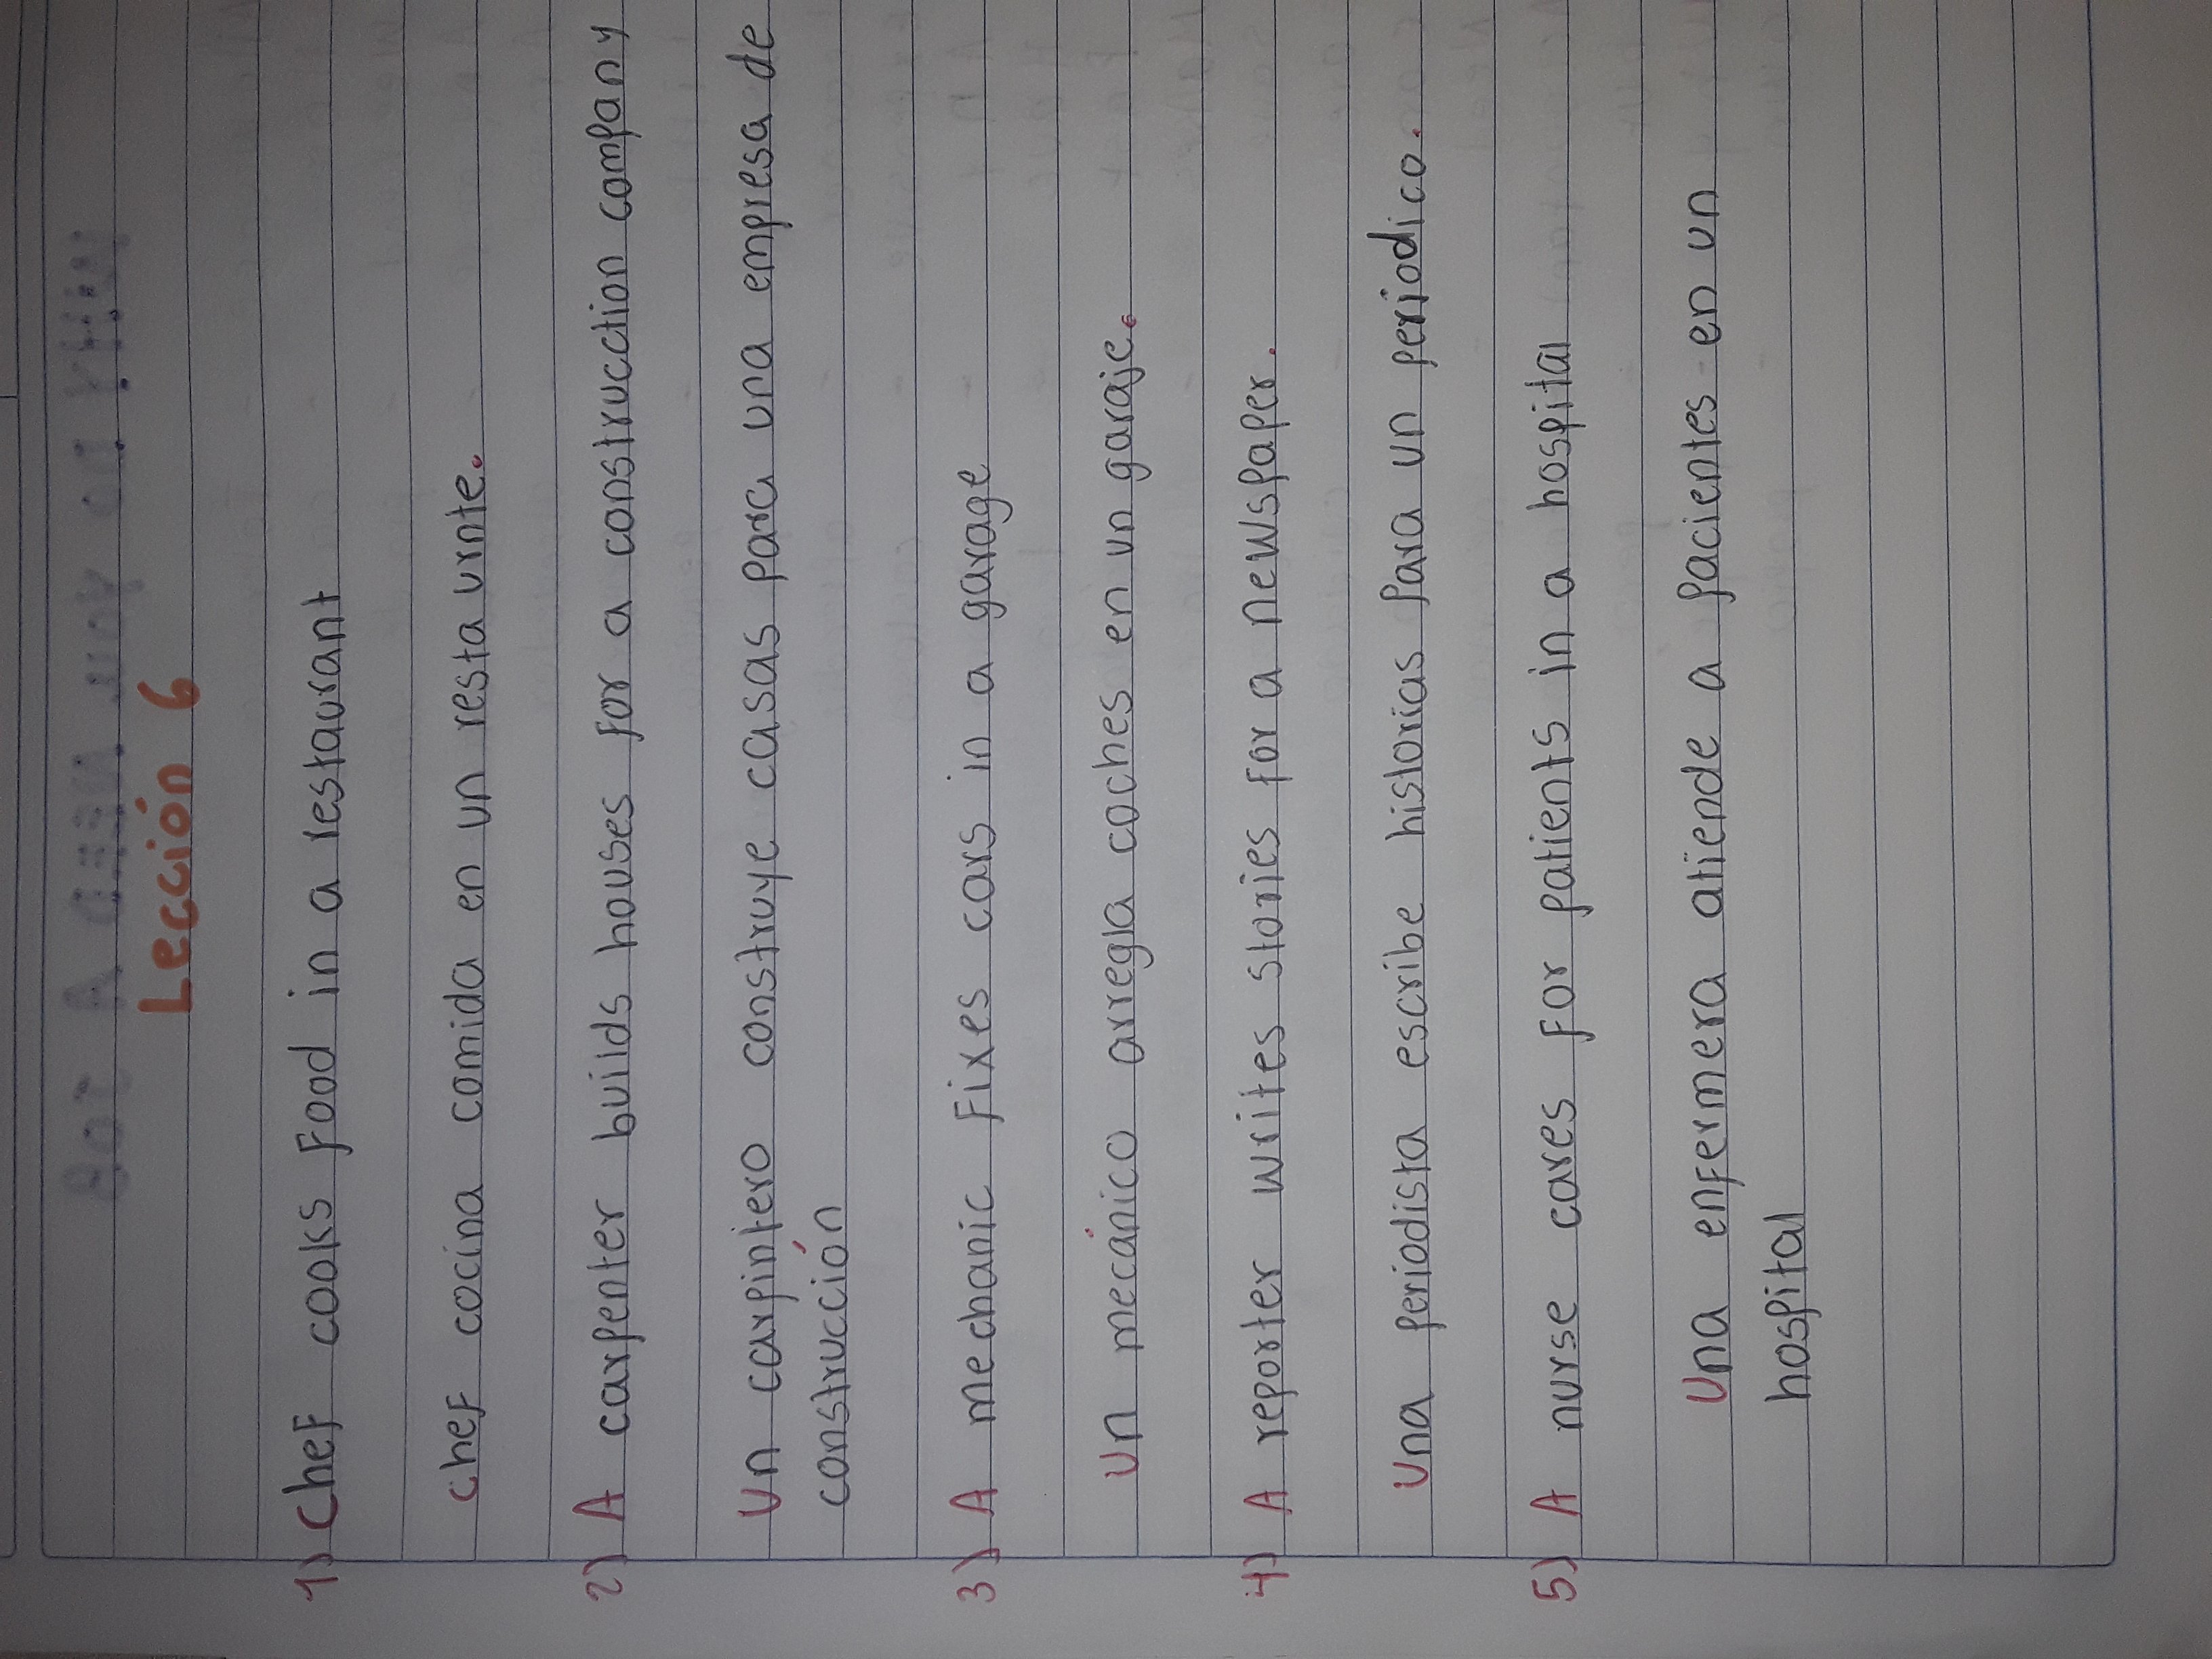 Lección 6
1) Chef cooks food in a restaurant
chef cocina comida en un restaurnte.
2) A carpenter builds houses for a construction company
Un carpintero construye casas para una empresa de
construcción
3) A mechanic fixes cars in a garage
Un mecánico arregla coches en un garaje.
4) A reporter writes stories for a newspaper.
Una periodista escribe historias para un periodico.
5) A nurse cares for patients in a hospital
Una enfermera atiende a pacientes en un
hospital